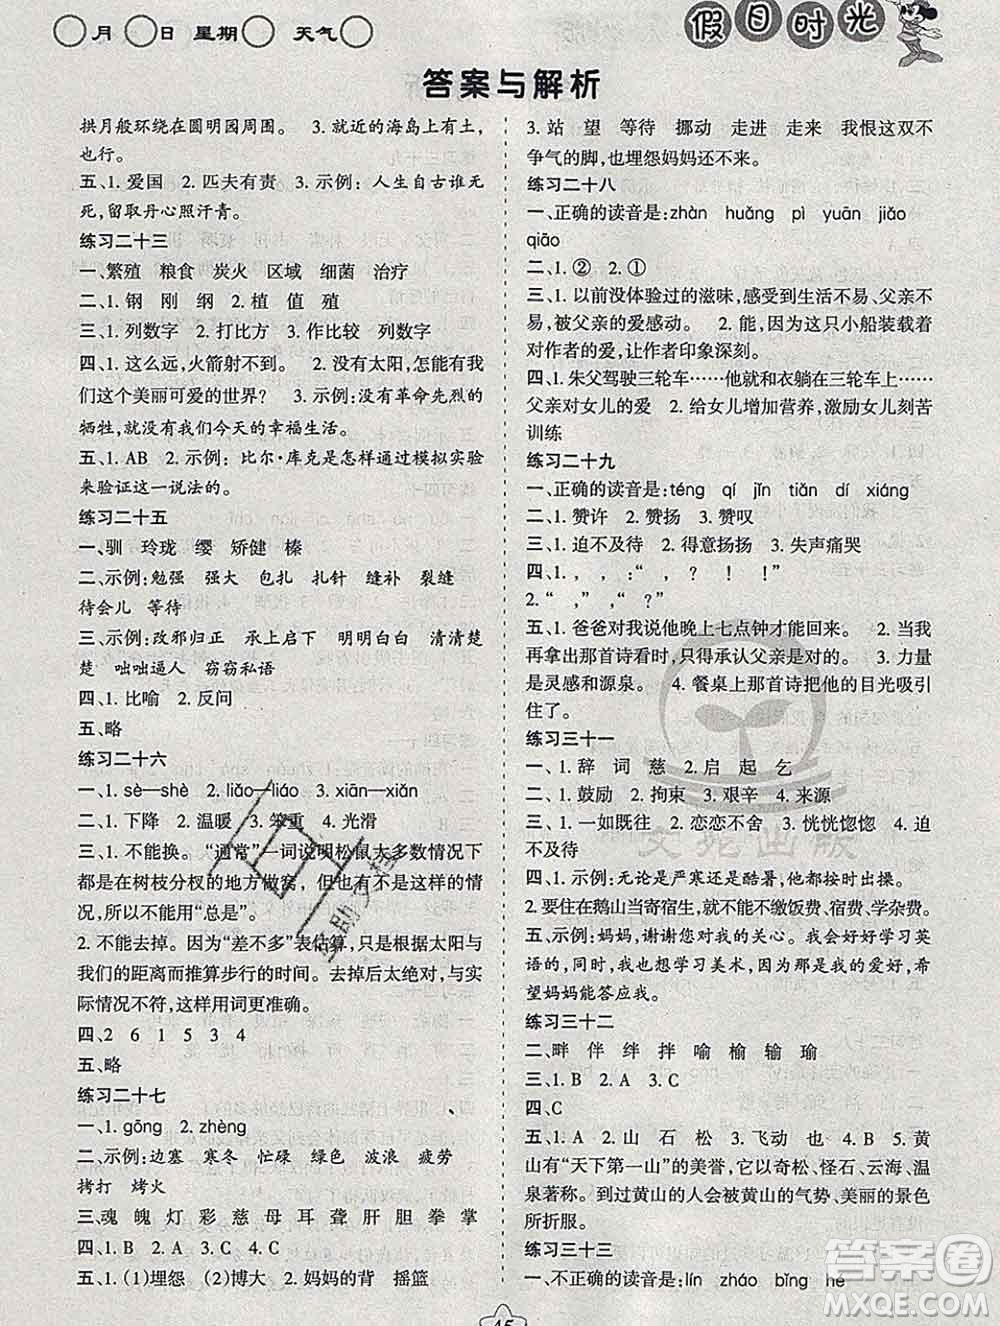 月 日 星期 天气
假日时光
答案与解析
拱月般环绕在圆明园周围。 3. 就近的海岛上有土,
也行。
五、1. 爱国 2. 匹夫有责 3. 示例:人生自古谁无
死,留取丹心照汗青。
练习二十三
一、繁殖 粮食 炭火 区域 细菌 治疗
二、1. 钢 刚 纲 2. 植 值 殖
三、1. 列数字 2. 打比方 3. 作比较 列数字
四、1. 这么远,火箭射不到。 2. 没有太阳,怎能有我
们这个美丽可爱的世界? 3. 示例:没有革命先烈的
牺牲,就没有我们今天的幸福生活。
五、1. AB 2. 示例:比尔·库克是怎么通过模拟实验
来验证这一说法的。
练习二十五
一、驯 玲珑 缨 矫健 榛
二、示例:勉强 强大 包扎 扎针 缝补 裂缝
待会儿 等待
三、示例:改邪归正 承上启下 明明白白 清清楚
楚 咄咄逼人 窃窃私语
四、1. 比喻 2. 反问
五、略
练习二十六
一、1. sè—shè 2. liǎo—liáo 3. xiān—xiǎn
二、1. 下降 2. 温暖 3. 笨重 4. 光滑
三、1. 不能换。“通常”一词说明松鼠大多数情况下
都是在树枝分杈的地方做窝,但也有不是这样的情
况,所以不能用“总是”。
2. 不能去掉。因为“差不多”表估算,只是根据太阳与
我们的距离而推算步行的时间。去掉后太绝对,与实
际情况不符,这样用词更准确。
四、2 6 1 5 3 4
五、略
练习二十七
一、1. gōng 2. zhèng
二、示例:边塞 寒冬 忙碌 绿色 波浪 疲劳
拷打 烤火
三、魂 魄 灯 彩 慈 母 耳 聋 肝 胆 拳 掌
四、1. B 2. A 3. C 4. C
五、1. (1)埋怨 (2)博大 2. 妈妈的背 摇篮
3. 站 望 等待 挪动 走进 走来 我恨这双不
争气的脚,也埋怨妈妈还不来。
练习二十八
一、正确的读音是:zhàn huǎng pì yuān jiǎo
qiāo
二、1. ② 2. ①
三、1. 以前没体验过的滋味,感受到生活不易、父亲不
易,被父亲的爱感动。 2. 能,因为这只小船装载着
对作者的爱,让作者印象深刻。
四、1. 朱父驾驶三轮车……他就和衣躺在三轮车上……
父亲对女儿的爱 2. 给女儿增加营养,激励女儿刻苦
训练
练习二十九
一、正确的读音是:téng qí jǐn tiǎn dí xiáng
二、1. 赞许 2. 赞扬 3. 赞叹
三、1. 迫不及待 2. 得意扬扬 3. 失声痛哭
四、1. , , :“ , , !”
2. “ , ”, :“ , !”
五、1. 爸爸对我说他晚上七点钟才能回来。 2. 当我
再拿出那首诗看时,只得承认父亲是对的。 3. 力量
是灵感和源泉。 4. 餐桌上那首诗把他的目光吸引
住了。
练习三十一
一、1. 辞 词 慈 2. 启 起 乞
二、1. 鼓励 2. 拘束 3. 艰辛 4. 来源
三、1. 一如既往 2. 恋恋不舍 3. 恍恍惚惚 4. 迫
不及待
四、1. 示例:无论是严寒还是酷暑,他都坚持锻炼。
2. 要住在鹅山当寄宿生,就不能不缴饭费、宿费、学杂费。
五、示例:妈妈,谢谢您对我的关心。我会好好学习英
语的,同时,我也想学习美术,因为那是我的爱好,希
望妈妈能答应我。
练习三十二
二、畔 伴 绊 拌 喻 榆 输 瑜
三、1. B 2. A 3. C
四、C
五、1. B 2. A 3. C 4. 山 石 松 5. 飞动 也 6. 黄
山有“天下第一山”的美誉,它以奇松、怪石、云海、温
泉著称。到过黄山的人会被黄山的气势、美丽的景色
所折服。
练习三十三
一、不正确的读音是:lín zháo bǐng hé
45
艾苑出版
答案圈
MXQE.COM